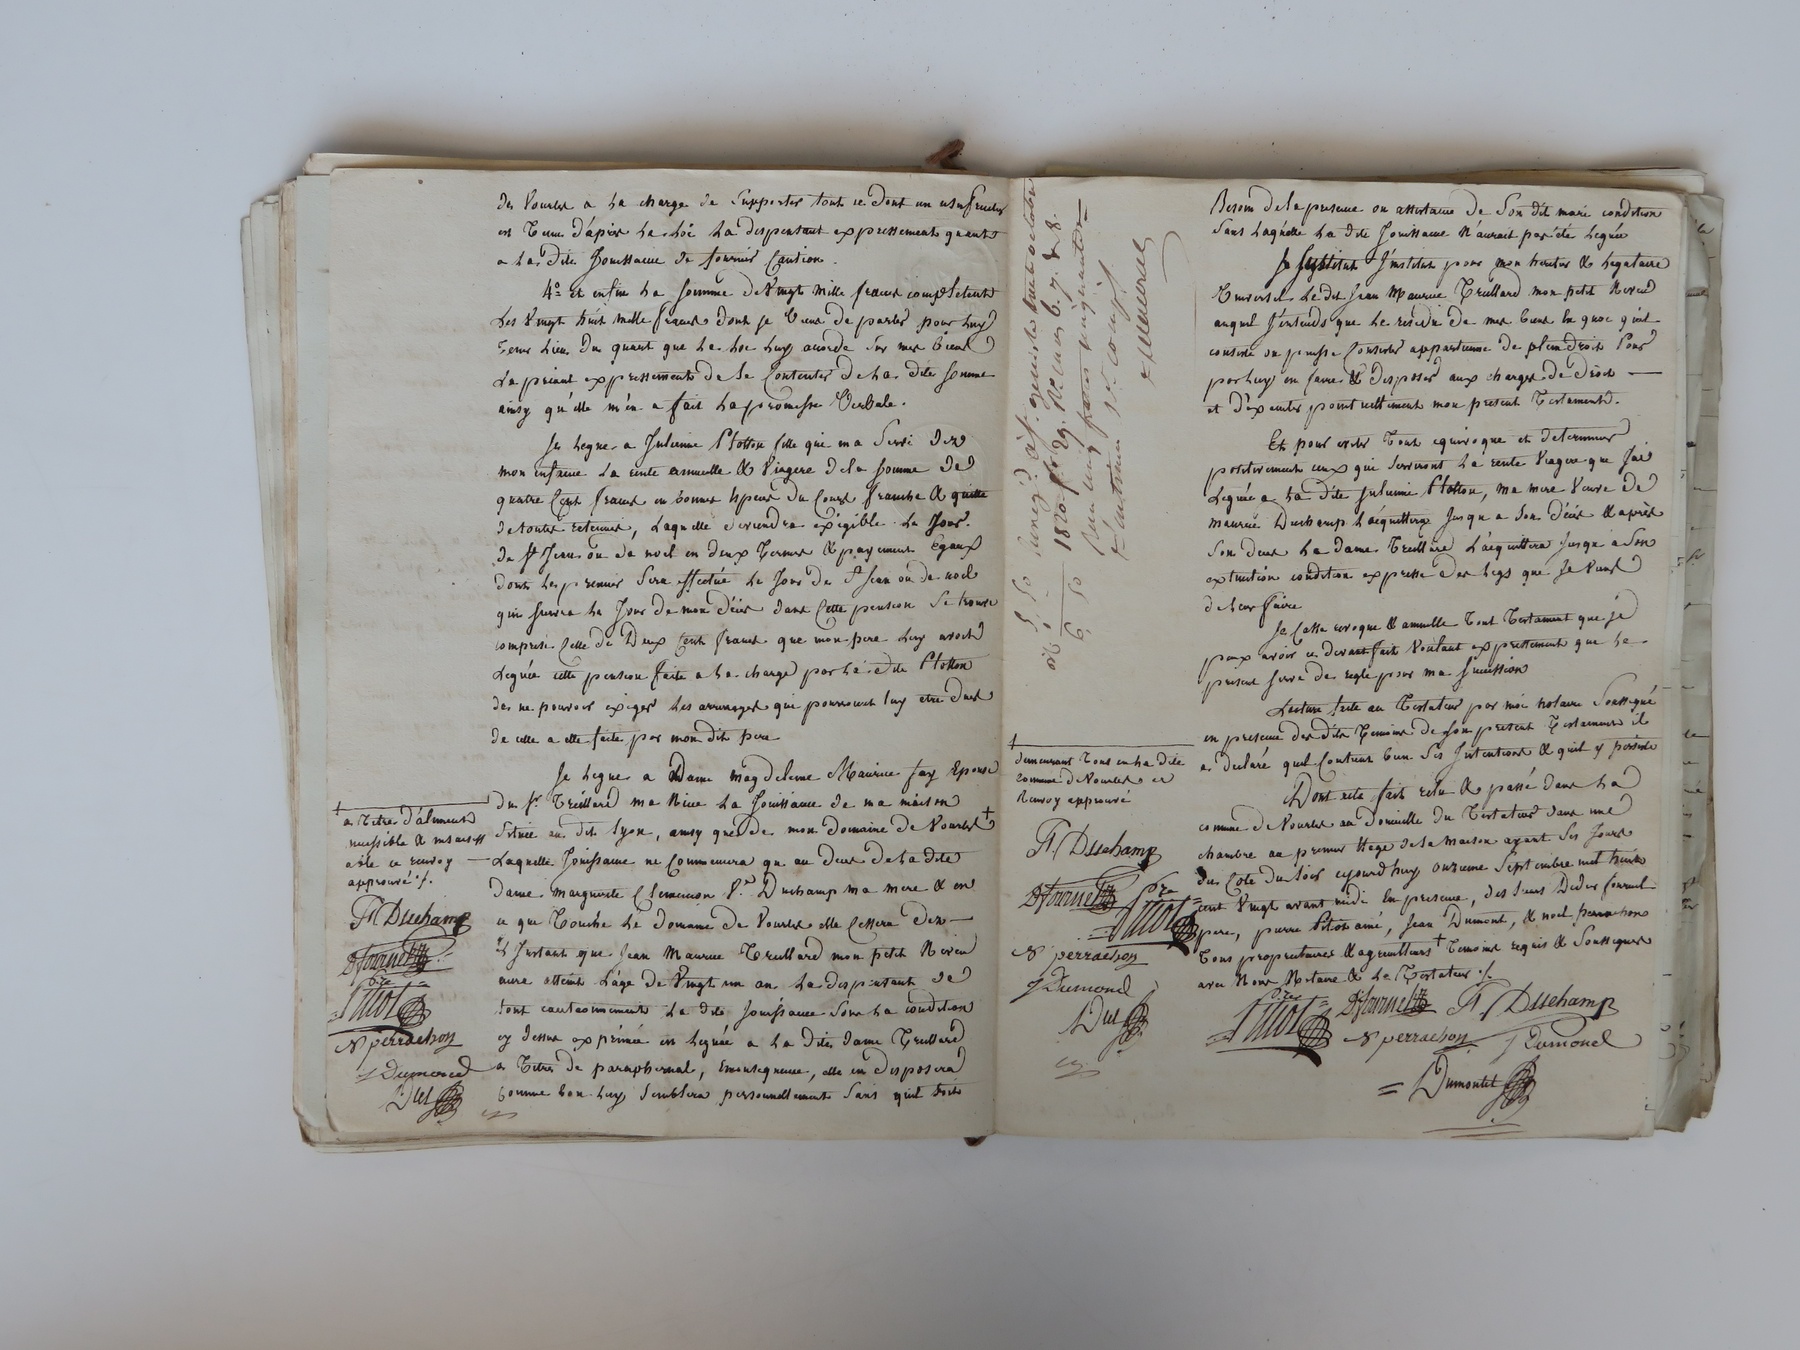 de Vourles a la charge de supporter tout ce dont un usufruitier
est tenu d'après la loi la dispensant expressement quant
a la dite Jouissance de fournir Caution.
4.º Et enfin la somme de Vingt mille francs completant
les Vingt huit mille francs dont je viens de parler pour luy
tenir lieu du quart que la loi luy accorde sur mes biens
La priant expressement de se Contenter de la dite somme
ainsy qu'elle m'en a fait la promesse Verbale.
Je legue a Julienne Plotton fille qui m'a servi dez
mon enfance la rente annuelle & viagere de la somme de
quatre Cent francs en bonnes Especes du Cours franche & quitte
de toutes retenues, Laquelle deviendra exigible le Jour
de St Jean ou de noel en deux Termes & payements Egaux
dont le premier sera effectué le Jour de St Jean ou de noel
qui suivra le Jour de mon décès dans cette pension se trouve
comprise Celle de Deux Cent francs que mon pere luy avoit
Leguée cette pension faite a la charge par la dite Plotton
de ne pouvoir exiger les arrerages qui pourroient luy etre dues
de celle a elle faite par mon dit pere
Je legue a Dame Magdeleine Maurice fay Epouse
du Sr. Treillard ma Niece la Jouissance de ma maison
Située au dit Lyon, ainsy que de mon Domaine de Vourles †
Laquelle Jouissance ne Commencera qu'au deces de la dite
Dame marguerite Clemencon Vve. Duchamp ma mere & en
ce que Touche le domaine de Vourles elle Cessera dez
l'Instant que Jean Maurice Treillard mon petit Neveu
aura atteint L'age de Vingt un an la dispensant de
tout cautionnement la dite Jouissance sous la condition
cy dessus exprimée est leguée a la dite dame Treillard
a Titre de paraphernal, Enconsequence, elle en disposera
comme bon luy semblera personnellement sans qu'il soit
† a Titre d'aliments
incessible & insaisissable
ce renvoy
approuvé ./.
Fs. Duchamp
D fournel
Pitiot
N perrachon
J Dumond
Dut
Besoin de la presence ou assistance de Son dit mari condition
sans laquelle la dite Jouissance n'aurait pas été leguée
J'institue pour mon heritier & legataire
Universel le dit Jean Maurice Treillard mon petit Neveu
auquel J'entends que le residu de mes biens En quoi qu'il
consiste ou puisse Consister appartienne de plein droit Pour
par luy en faire & disposer aux charges de droit
et d'executer ponctuellement mon present Testament.
Et pour eviter Tout equivoque et determiner
positivement ceux qui serviront la rente Viagere que J'ai
Leguée a la dite Julienne Plotton, ma mere Veuve de
Maurice Duchamp l'acquittera Jusqu a son décès & après
son deces la dame Treillard L'acquittera Jusqu a son
extinction condition expresse des legs que Je Viens
de leur faire
Je Casse revoque & annulle Tout Testament que je
peux avoir ci devant fait Voulant expressement que le
present serve de regle pour ma succession
Lecture faite au Testateur par moi notaire Soussigné
en presence des dits Temoins de son present Testament il
a declaré quil Contient bien Ses Intentions & quil y persiste
Dont acte fait relu & passé dans la
commune de Vourles au Domicile du Testateur dans une
chambre au premier etage de la maison ayant ses Jours
du Coté du soir cejourd'huy onzieme Septembre mil huit
cent Vingt avant midi En presence, des sieurs Didier fournel
pere, pierre Pitiot ainé, Jean Dumont, & noel perrachon
Tous proprietaires & agriculteurs † Temoins requis & Soussignés
avec Nous Notaire & le Testateur ./.
Pitiot D fournel Fs. Duchamp
N perrachon J Dumond
Dumontet
† demeurant Tous en la dite
Commune de Vourles ce
Renvoy approuvé
Fs. Duchamp
D fournel
Pitiot
N perrachon
J Dumond
Dut
5, 50
50
6,